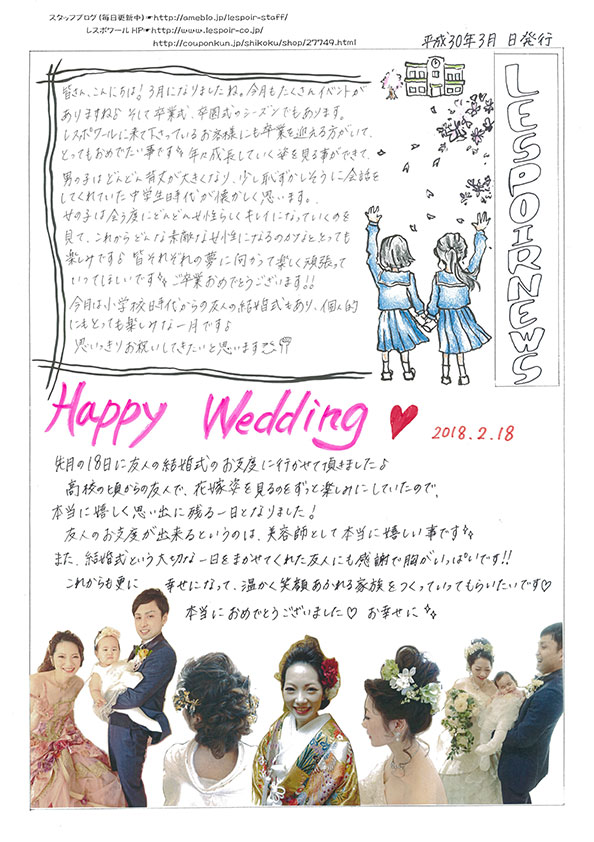 スタッフブログ(毎日更新中)☛http://ameblo.jp/lespoir-staff/
レスポワールHP☛http://www.lespoir-co.jp/
http://couponkun.jp/shikoku/shop/27749.html
平成30年3月 日発行
LESPOIRNEWS
皆さん、こんにちは!3月になりましたね。今月もたくさんイベントが
ありますね♪そして卒業式、卒園式のシーズンでもあります。
レスポワールに来て下さっているお客様にも卒業を迎える方がいて、
とってもおめでたい事です✨年々成長していく姿を見る事ができて、
男の子はどんどん背丈が大きくなり、少し恥ずかしそうに会話を
してくれていた中学生時代が懐かしく思います。
女の子は会う度にどんどん女性らしくキレイになっていくのを
見て、これからどんな素敵な女性になるのかなととっても
楽しみです♪皆それぞれの夢に向かって楽しく頑張って
いってほしいです✨ご卒業おめでとうございます!!
今月は小学校時代からの友人の結婚式もあり、個人的
にもとっても楽しみな一月です♪
思いっきりお祝いしてきたいと思います
Happy Wedding ♥ 2018.2.18
先月の18日に友人の結婚式のお支度に行かせて頂きました♪
高校の頃からの友人で、花嫁姿を見るのをずっと楽しみにしていたので、
本当に嬉しく思い出に残る一日となりました!
友人のお支度が出来るというのは、美容師として本当に嬉しい事です✨
また、結婚式という大切な一日をまかせてくれた友人にも感謝で胸がいっぱいです!!
これからも更に 幸せになって、温かく笑顔あふれる家族をつくっていってもらいたいです♡
本当におめでとうございました♡ お幸せに✨